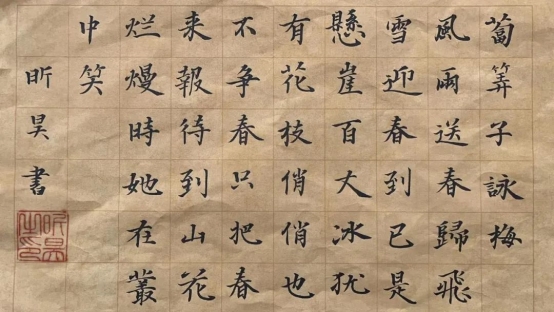 蔔筭子詠梅
風雨送春歸飛
雪迎春到已是
懸崖百丈冰犹
有花枝俏俏也
不争春只把春
来報待到山花
烂熳時她在叢
中笑
昕昊書